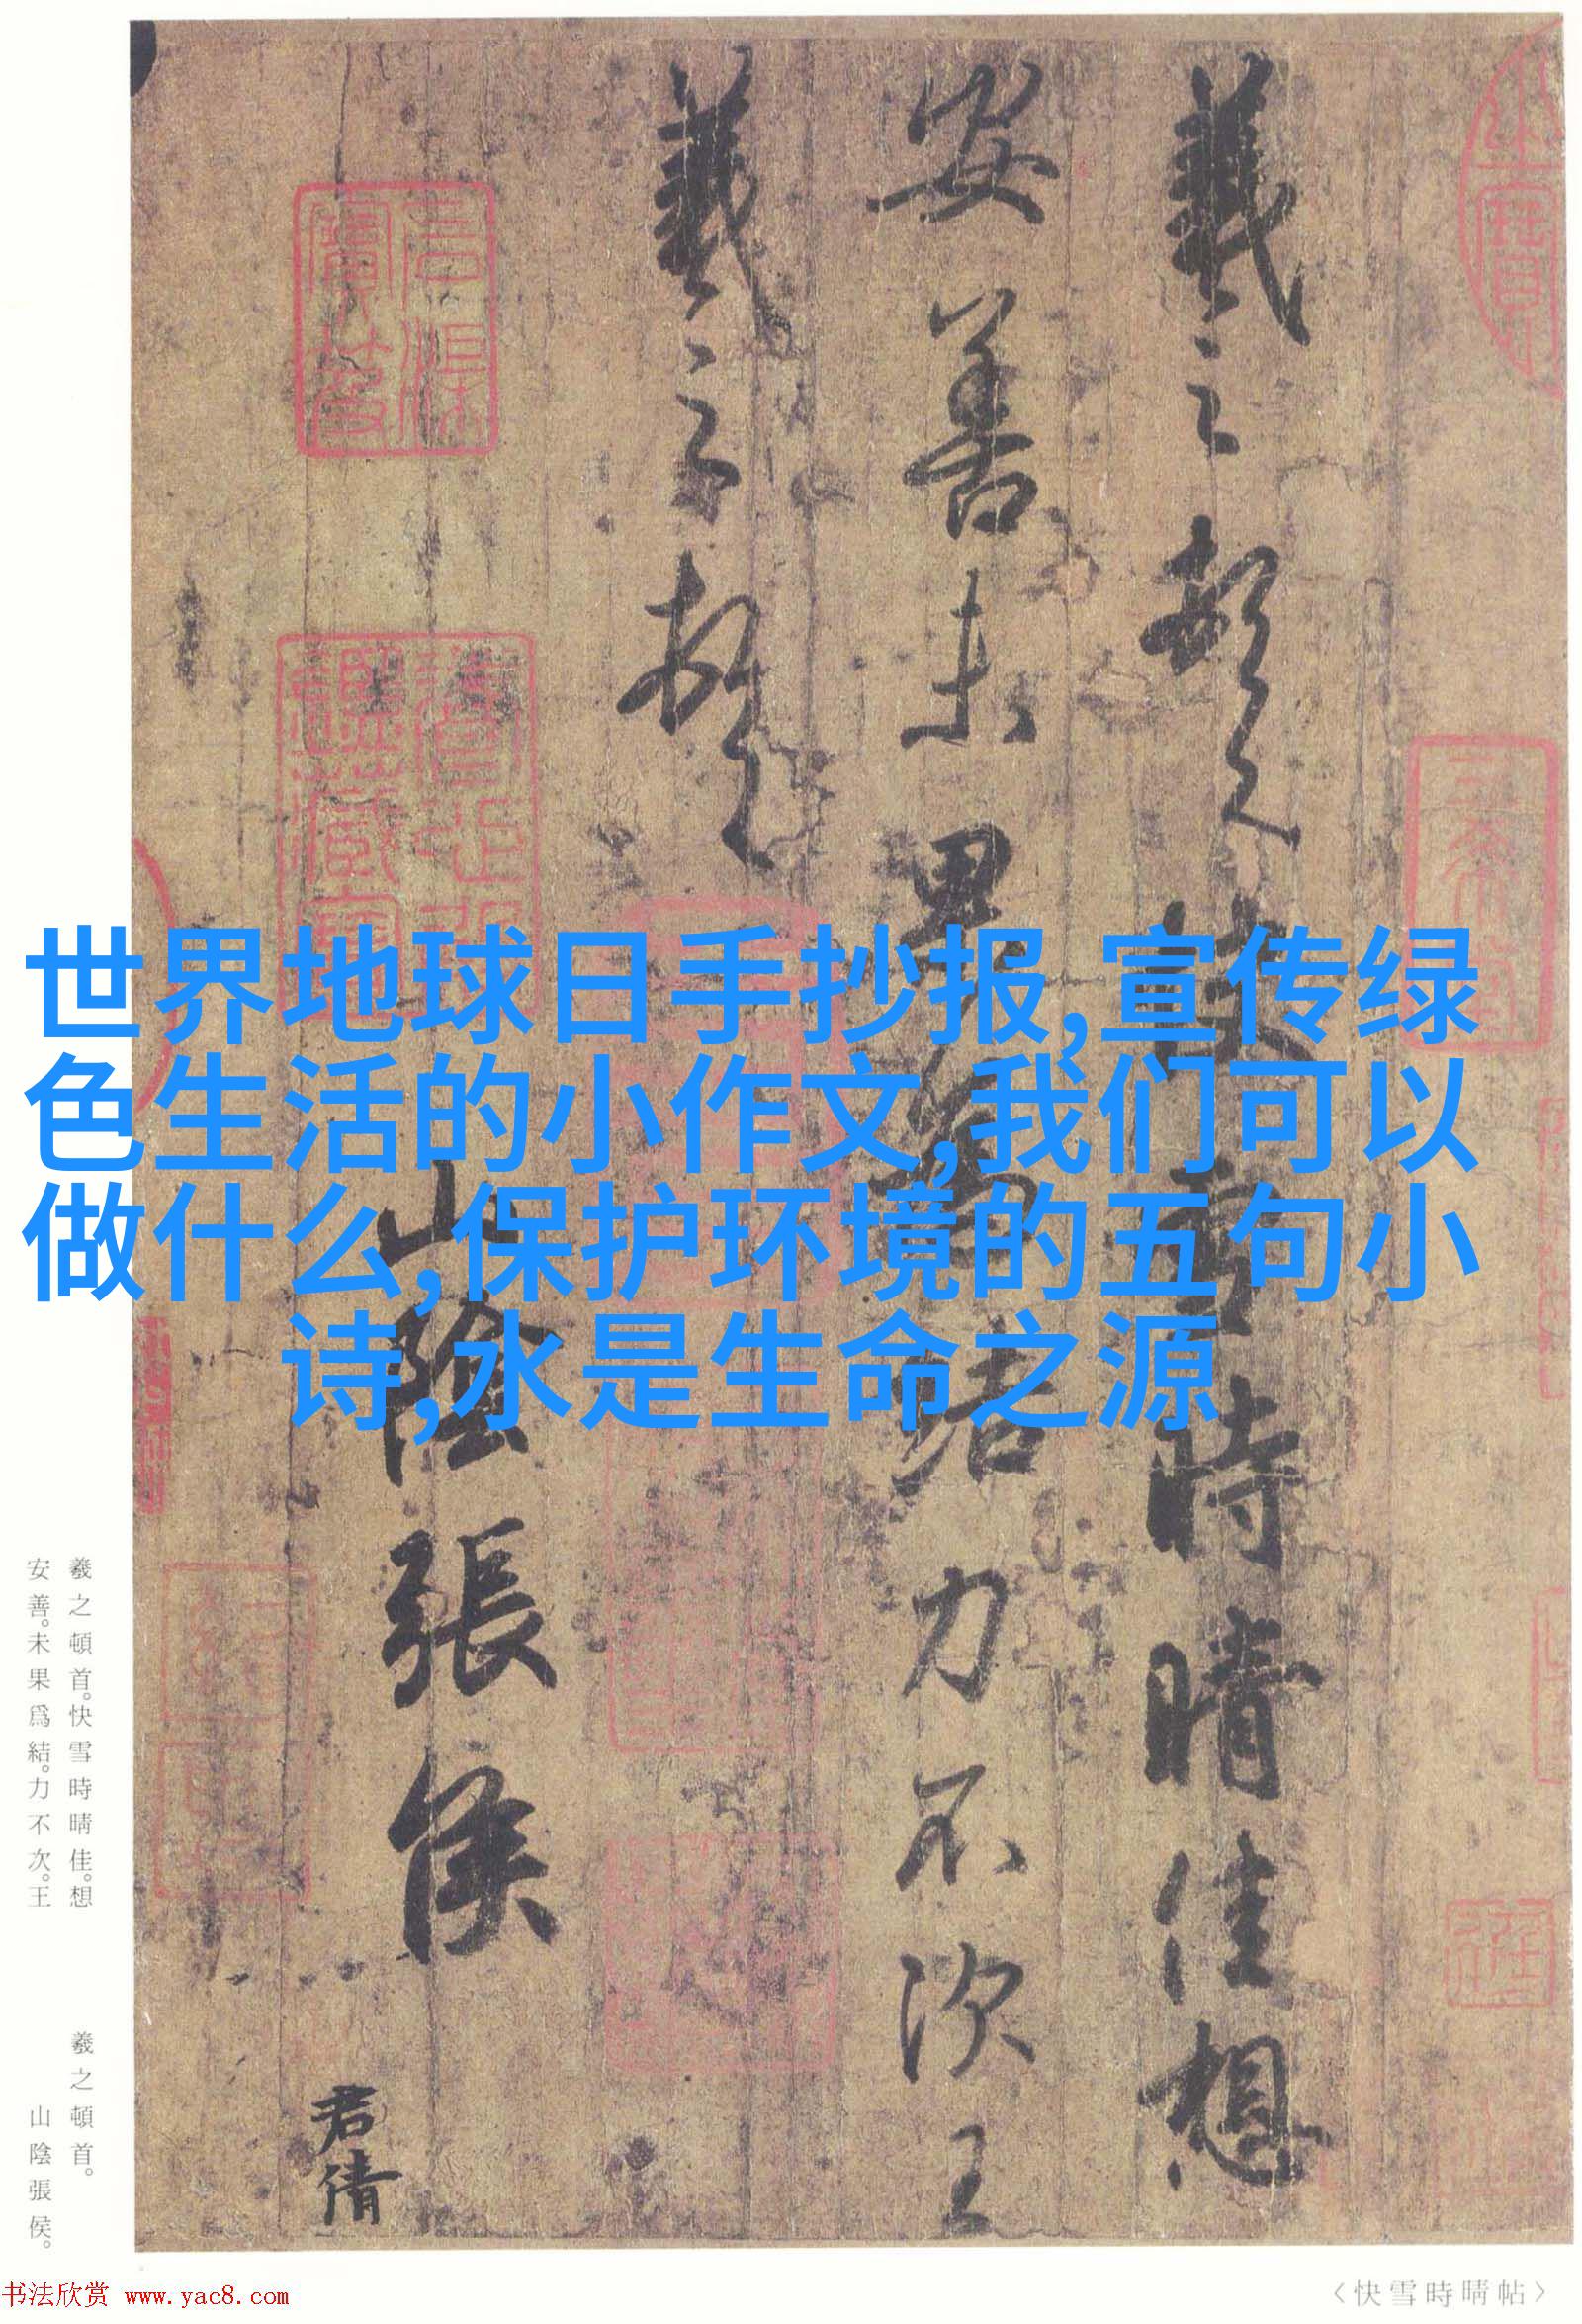 世界地球日手抄报,宣传绿
色生活的小作文,我们可以
做什么,保护环境的五句小
诗,水是生命之源
羲之頓首快雪時晴佳想
安善未果為結力不次王
羲之頓首
山陰張侯
君倩
羲之頓首。快雪時晴佳。想
安善。未果爲結。力不次。王
羲之頓首。
山陰張侯。
书法欣赏 www.yac8.com
〈快雪時晴帖〉